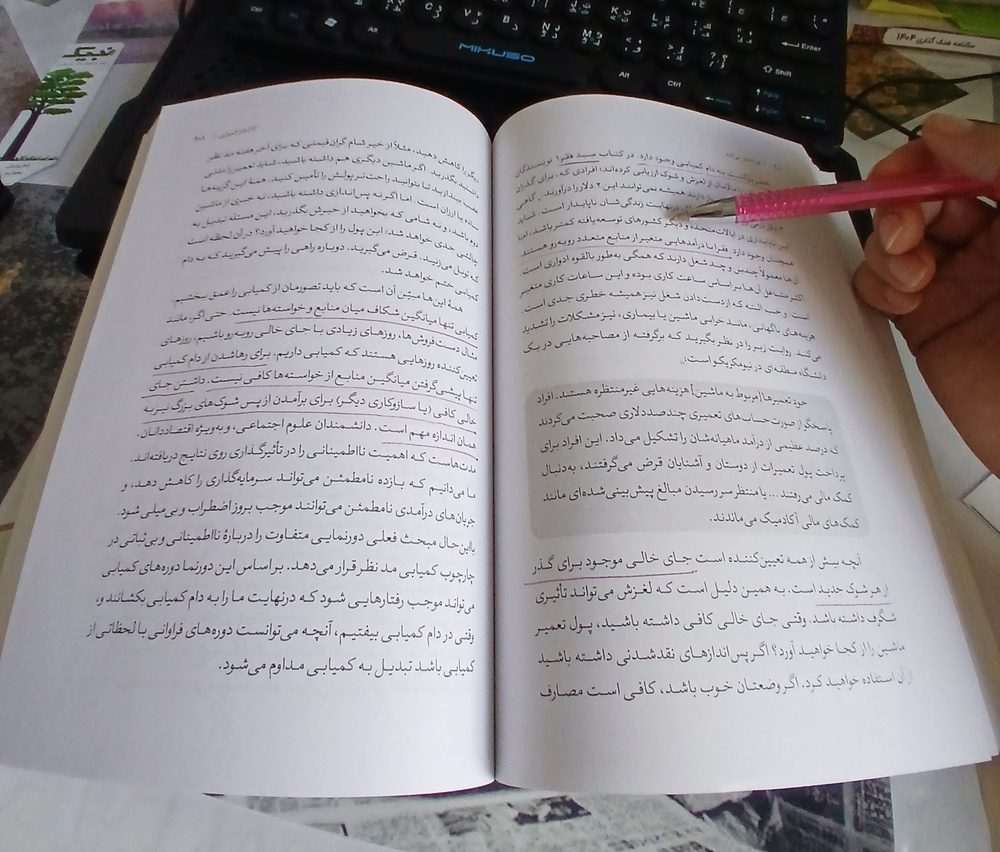 سبد فقرا نویسندگان
گذران
همیشه نمی‌توانند این ۲ دلار را درآورند. گاهی
نهایت زندگی‌شان ناپایدار است. شاید
ایالات متحده و دیگر کشورهای توسعه‌یافته کمتر باشد، اما
همچنان وجود دارد. فقرا با درآمدهایی متغیر از منابع متعدد روبه‌رو هستند.
آن‌ها معمولاً چندین و چند شغل دارند که همگی به‌طور بالقوه ادواری است.
اکثر مشاغل آن‌ها بر اساس ساعت کاری بوده و این ساعات کاری متغیر
است. و خب البته که ازدست‌دادن شغل نیز همیشه خطری جدی است.
هزینه‌های ناگهانی، مانند خرابی ماشین یا بیماری، نیز مشکلات را تشدید
می‌کند. روایت زیر را در نظر بگیرید که برگرفته از مصاحبه‌هایی در یک
دانشگاه منطقه‌ای در نیومکزیکو است:
خود تعمیرها [مربوط به ماشین] هزینه‌هایی غیرمنتظره هستند. افراد
پاسخگو از صورت‌حساب‌های تعمیری چندصددلاری صحبت می‌کردند
که درصد عظیمی از درآمد ماهیانه‌شان را تشکیل می‌داد. این افراد برای
پرداخت پول تعمیرات از دوستان و آشنایان قرض می‌گرفتند، به‌دنبال
کمک مالی می‌رفتند ... یا منتظر سر رسیدن مبالغ پیش‌بینی‌شده‌ای مانند
کمک‌های مالی آکادمیک می‌ماندند.
آنچه بیش از همه تعیین‌کننده است جای خالی موجود برای گذر
از هر شوک جدید است. به همین دلیل است که لغزش می‌تواند تأثیری
شگرف داشته باشد. وقتی جای خالی کافی داشته باشید، پول تعمیر
ماشین را از کجا خواهید آورد؟ اگر پس‌اندازهای نقدشدنی داشته باشید
از آن استفاده خواهید کرد. اگر وضعتان خوب باشد، کافی است مصارف
دیگر را کاهش دهید، مثلاً از خیر شام گران‌قیمتی که برای آخر هفته مد نظر
داشتید بگذرید. اگر ماشین دیگری هم داشته باشید، شاید تعمیر را کمی
عقب بیندازید تا بتوانید راحت‌تر پولش را تأمین کنید. همه این گزینه‌ها
ساده یا ارزان است. اما اگر نه پس‌اندازی داشته باشید، نه خبری از ماشین
دوم باشد، و نه شامی که بخواهید از خیرش بگذرید، این مسئله تبدیل به
چالشی جدی خواهد شد، این پول را از کجا خواهید آورد؟ در آن لحظه است
که تونل می‌زنید. قرض می‌گیرید. دوباره راهی را پیش می‌گیرید که به دام
کمیابی ختم خواهد شد.
همهٔ این‌ها مبین آن است که باید تصورمان از کمیابی را عمق ببخشیم.
کمیابی تنها میانگین شکاف میان منابع و خواسته‌ها نیست. حتی اگر، مانند
مثال دست‌فروش‌ها، روزهای زیادی با جای خالی روبه‌رو باشیم، روزهای
تعیین‌کننده روزهایی هستند که کمیابی داریم. برای رهاشدن از دام کمیابی
تنها پیشی‌گرفتن میانگین منابع از خواسته‌ها کافی نیست. داشتن جای
خالی کافی (یا سازوکاری دیگر) برای برآمدن از پس شوک‌های بزرگ نیز به
همان اندازه مهم است. دانشمندان علوم اجتماعی، و به‌ویژه اقتصاددانان،
مدت‌هاست که اهمیت نااطمینانی را در تأثیرگذاری روی نتایج دریافته‌اند.
ما می‌دانیم که بازده نامطمئن می‌تواند سرمایه‌گذاری را کاهش دهد، و
جریان‌های درآمدی نامطمئن می‌توانند موجب بروز اضطراب و بی‌میلی شود.
بااین‌حال مبحث فعلی دورنمایی متفاوت را دربارهٔ نااطمینانی و بی‌ثباتی در
چارچوب کمیابی مد نظر قرار می‌دهد. بر اساس این دورنما دوره‌های کمیابی
می‌تواند موجب رفتارهایی شود که درنهایت ما را به دام کمیابی بکشانند و،
وقتی در دام کمیابی بیفتیم، آنچه می‌توانست دوره‌های فراوانی با لحظاتی از
کمیابی باشد تبدیل به کمیابی مداوم می‌شود.
MIKUSO
Alt
Alt
Ctrl
Enter
Shift
سالنامه هدف گذاری ۱۴۰۴